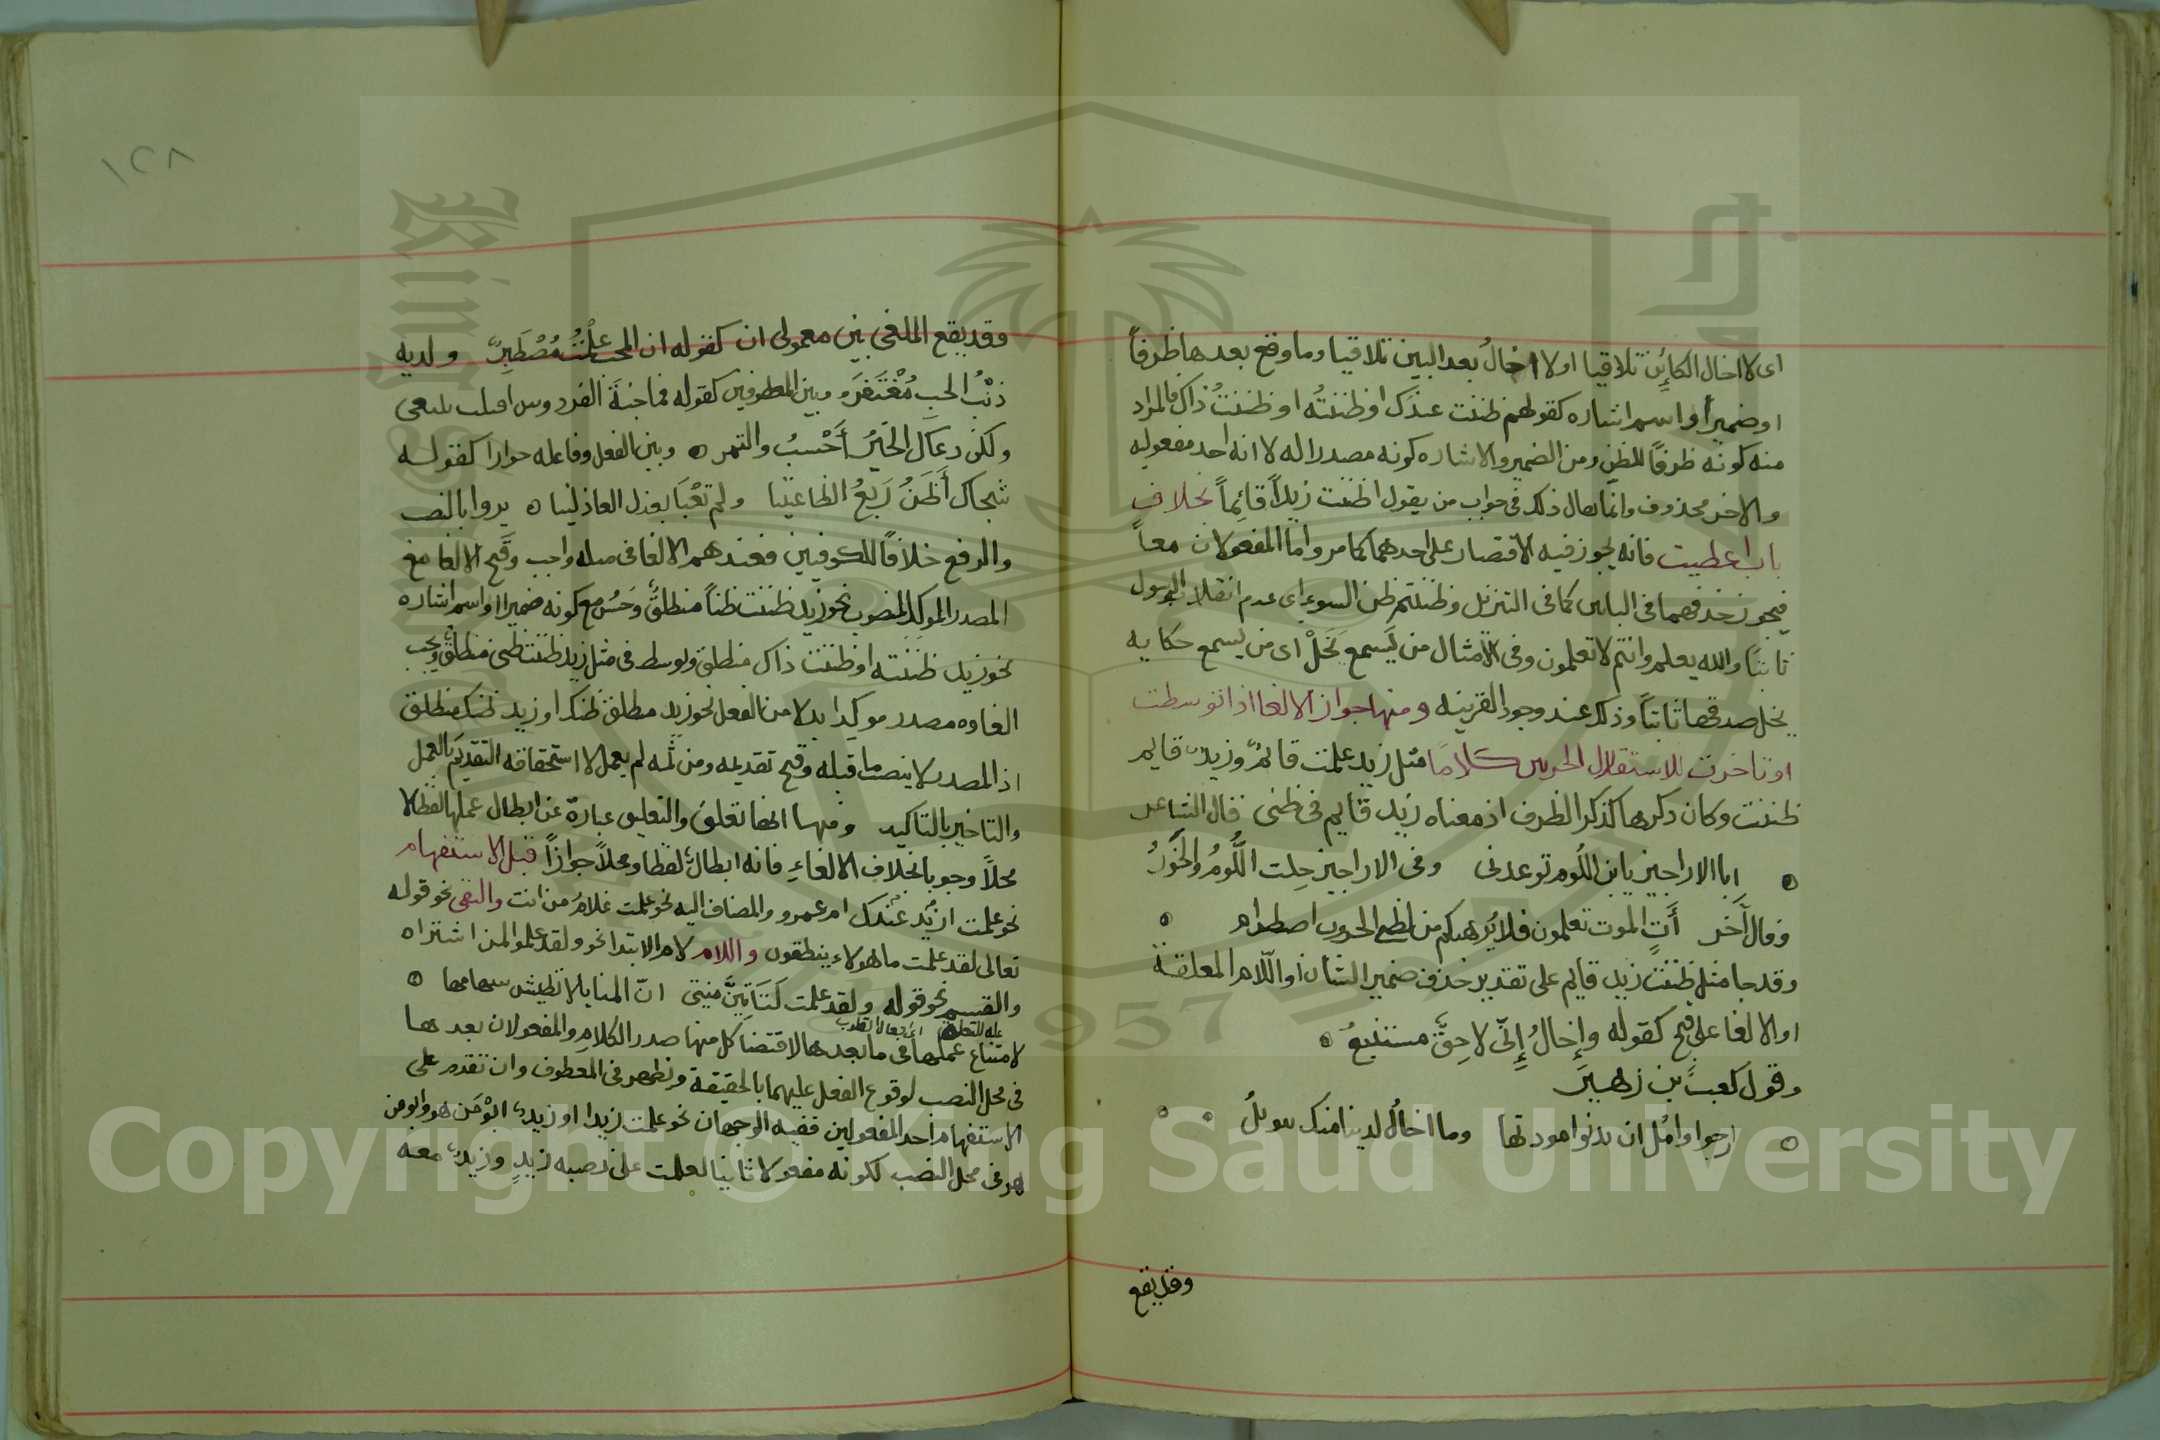 اى لا اخال الكائن تلاقيا او لا اخالُ بعد البين تلاقيا وما وقع بعدها ظرفاً
او ضميراً او اسم اشاره كقولهم ظننت عندك او ظننته او ظننتُ ذاك فالمراد
منه كونه ظرفًا للظن ومن الضمير والاشاره كونه مصدرا له لا انه احد مفعوليه
والاخر محذوف وانما يقال ذلك فى جواب من يقول اظننت زيداً قائماً بخلاف
باب اعطيت فانه يجوز فيه الاقتصار على احدهما كما مر واما المفعولان معاً
فيجوز حذفهما فى البابين كما فى التنزيل وظننتم ظن السوء اى عدم انقلاب الرسول
ثابتاً والله يعلم وانتم لا تعلمون وفى الامثال من يَسمع يَخَلْ اى من يسمع حكايه
يخل صدقها ثابتاً وذلك عند وجود القرينه ومنها جواز الالغا اذا توسطت
او تاخرت لاستقلال الجزيين كلامًا مثل زيد علمت قائم وزيد قايم
ظننت وكان ذكرها كذكر الظرف اذ معناه زيد قايم فى ظنى قال الشاعر
ابا الاراجيز يا ابن اللُوم توعدنى وفى الاراجيز خِلت اللُّومُ والخَوَرُ
وقال آخر أتٍ الموت تعلمون فلا يُرهبكم من لظى الحروب اضطرام
وقد جا مثل ظننت زيد قايم على تقدير حذف ضمير الشان او اللام المعلقة
او الالغا على قبح كقوله وإخالُ إنّى لاحِقٌ مستتبعُ
وقول كعب بن زهير
ارجوا وامُل ان تدنوا مودتها وما اخالُ لدينا منك تنويلُ
وقد يقع
١٢٨
وقد يقع الملغى بين معمولى ان كقوله ان المحب علمْتُ مُصْطَبِرٌ ولديه
ذنْبُ الحبِ مُغْتَفَرُ وبين المعطوفين كقوله فما جنة الفردوس اقبلت تبتغى
ولكن دعاك الخبزُ أَحْسبُ والتمر وبين الفعل وفاعله جوازا كقوله
شجاك أَظنُ رَبعُ الظاعنينا ولم تعْبَا بعذل العاذلينا يروا بالنصب
والرفع خلافًا للكوفيين فعندهم الالغا فى مثله واجب وقَبح الالغا مع
المصدر الموكد المنصوب نحو زيد ظننت ظناً منطلقٌ وحَسُن مع كونه ضميرا او اسم اشاره
نحو زيد ظننته او ظننت ذاك منطلق وتوسط فى مثل زيد ظننت ظنى منطلق ويجب
الغاوه مصدر موكدا بدلا من الفعل نحو زيد منطلق ظنك او زيد ظنك منطلق
اذ المصدر لا ينصب ما قبله وقبح تقديمه ومن ثمه لم يعمل لا استحقاقه التقديم بالعمل
والتاخير بالتاكيد ومنها انها تعلق والتعليق عبارة عن ابطال عملها لفظا لا
محلاً وجوبا بخلاف الالغاءِ فانه ابطال لفظا ومحلاً جوازاً قبل الاستفهام
نحو علمت ازيْد عندك ام عمرو والمضاف اليه نحو علمت غلامُ من انت والنفى نحو قوله
تعالى لقد علمت ما هولاء ينطقون واللام لام الابتدا نحو ولقد علموا لمن اشتراه
والقسم نحو قوله ولقد علمت لَتَاتِيَنَّ منيتى انّ المنايا لا تطيش سهامها
لامتناع عملها فى ما بعدها لاقتضا كل منها صدر الكلام والمفعولان بعدها
فى محل النصب لوقوع الفعل عليهما بالحقيقة ويظهر فى المعطوف وان تقدم على
الاستفهام احد المفعولين ففيه الوجهان نحو علمت زيدا او زيدٌ ابُوْ مَن هو وابو من
هو فى محل النصب لكونه مفعولا ثانيا لعلمت على نصبه زيد وزيد معه
Copyright © King Saud University
1957